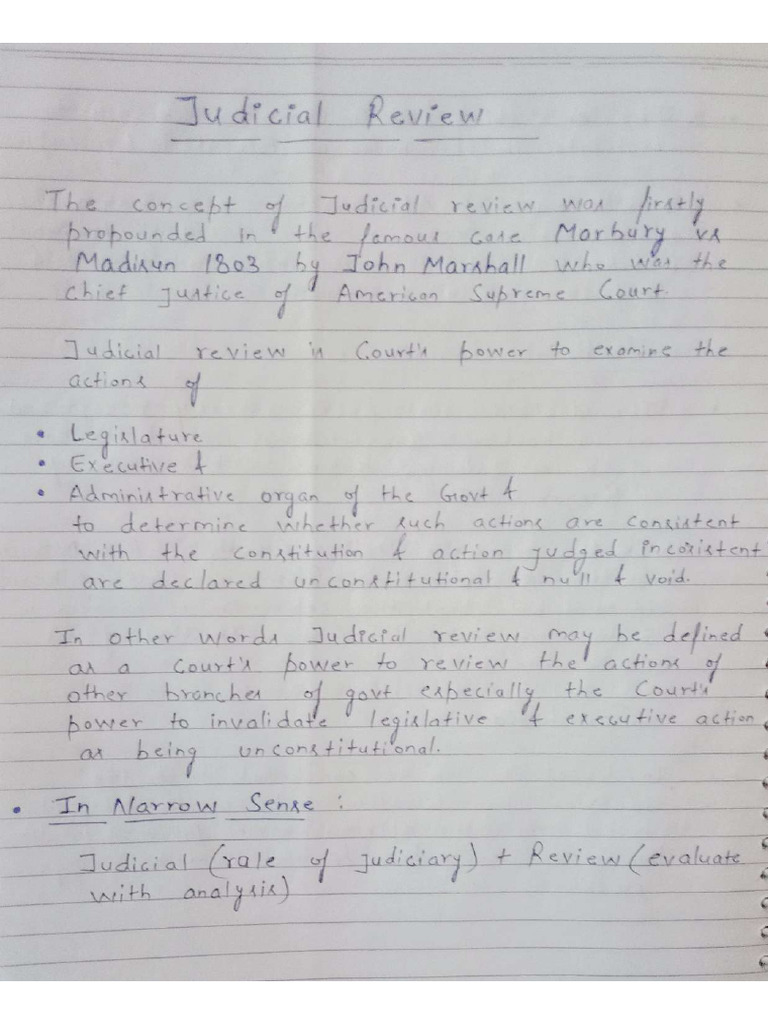 Judicial Review
The concept of Judicial review was firstly
propounded in the famous case Marbury vs
Madisun 1803 by John Marshall who was the
chief justice of American Supreme Court.
Judicial review is Court's power to examine the
actions of
• Legislature
• Executive &
• Administrative organ of the Govt &
to determine whether such actions are consistent
with the constitution & action judged inconsistent
are declared unconstitutional & null & void.
In other words Judicial review may be defined
as a Court's power to review the actions of
other branches of govt especially the Court's
power to invalidate legislative & executive action
as being unconstitutional.
• In Narrow Sense :
Judicial (role of judiciary) + Review (evaluate
with analysis)